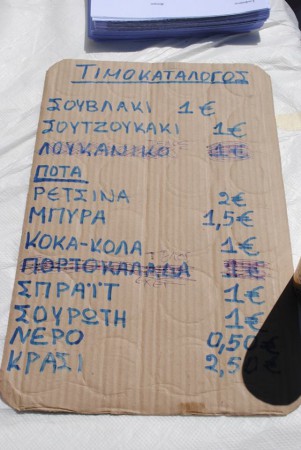 ΤΙΜΟΚΑΤΑΛΟΓΟΣ
ΣΟΥΒΛΑΚΙ 1€
ΣΟΥΤΖΟΥΚΑΚΙ 1€
ΛΟΥΚΑΝΙΚΟ 1€
ΠΟΤΑ
ΡΕΤΣΙΝΑ 2€
ΜΠΥΡΑ 1,5€
ΚΟΚΑ-ΚΟΛΑ 1€
ΠΟΡΤΟΚΑΛΑΔΑ 1€
ΣΠΡΑΪΤ 1€
ΣΟΥΡΩΤΗ 1€
ΝΕΡΟ 0,50€
ΚΡΑΣΙ 2,50€